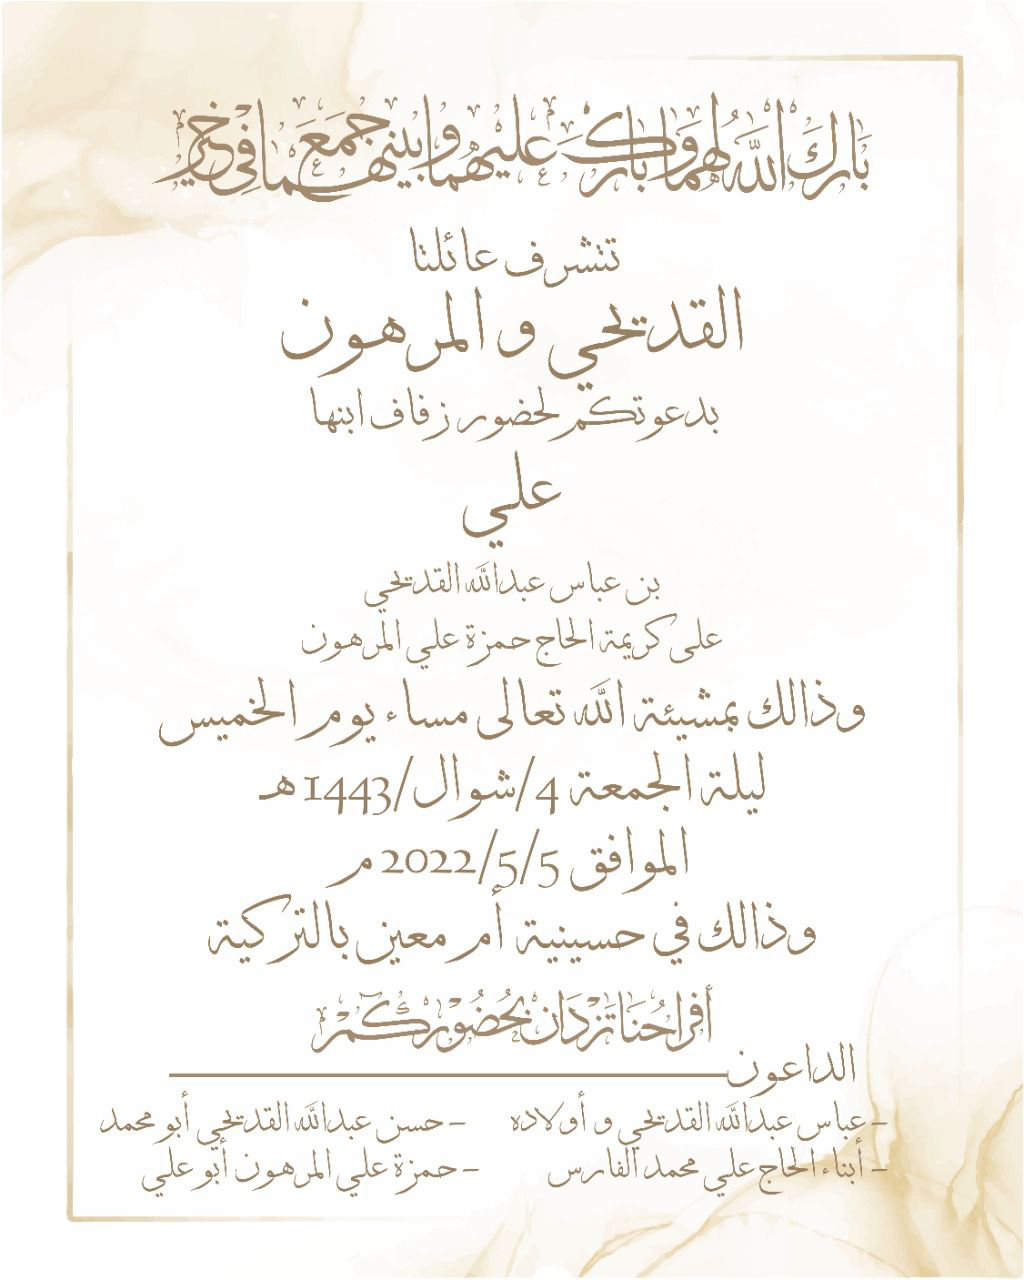 بارك الله لهما وبارك عليهما وجمع بينهما في خير
تتشرف عائلتا
القديحي و المرهون
بدعوتكم لحضور زفاف ابنها
علي
بن عباس عبدالله القديحي
على كريمة الحاج حمزة علي المرهون
وذالك بمشيئة الله تعالى مساء يوم الخميس
ليلة الجمعة 4/شوال/1443هـ
الموافق 2022/5/5 م
وذالك في حسينية أم معين بالتركية
أَفراحُنَا تَزْدَان بحُضُوْرِكُمْ
الداعون
- عباس عبدالله القديحي و أولاده - حسن عبدالله القديحي أبو محمد
- أبناء الحاج علي محمد الفارس - حمزة علي المرهون أبو علي